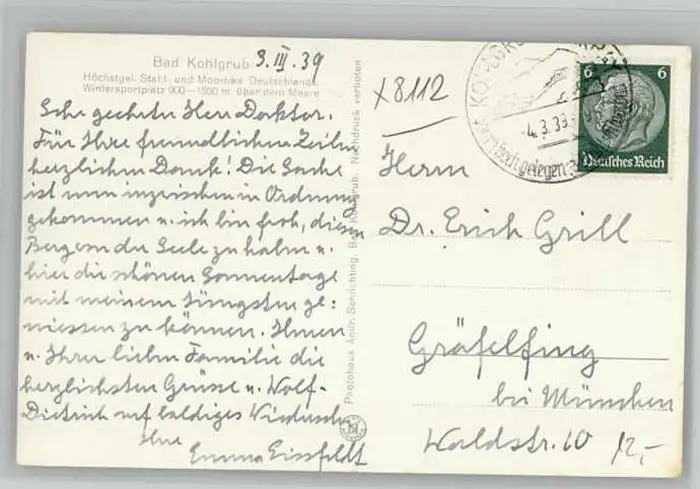 Bad Kohlgrub 3. III. 39
Höchstgel. Stahl- und Moorbad Deutschlands
Wintersportplatz 900—1500 m über dem Meere
Sehr geehrter Herr Doktor.
Für Ihre freundlichen Zeilen
herzlichen Dank! Die Sache
ist nun inzwischen in Ordnung
gekommen u. ich bin froh, diesen
Berg von der Seele zu haben u.
hier die schönen Sonnentage
mit meinem Jüngsten ge:
niessen zu können. Ihnen
u. Ihrer lieben Familie die
herzlichsten Grüsse u. Wolf-
Dietrich auf baldiges Wiedersehn
Ihre
Emma Eissfeldt
Photohaus Andr. Schilchting, Bad Kohlgrub. Nachdruck verboten
x8112
4.3.39
hoch gelegen
6 6
Deutsches Reich
Herrn
Dr. Erich Grill
Gräfelfing
bei München
Waldstr. 10
12,-